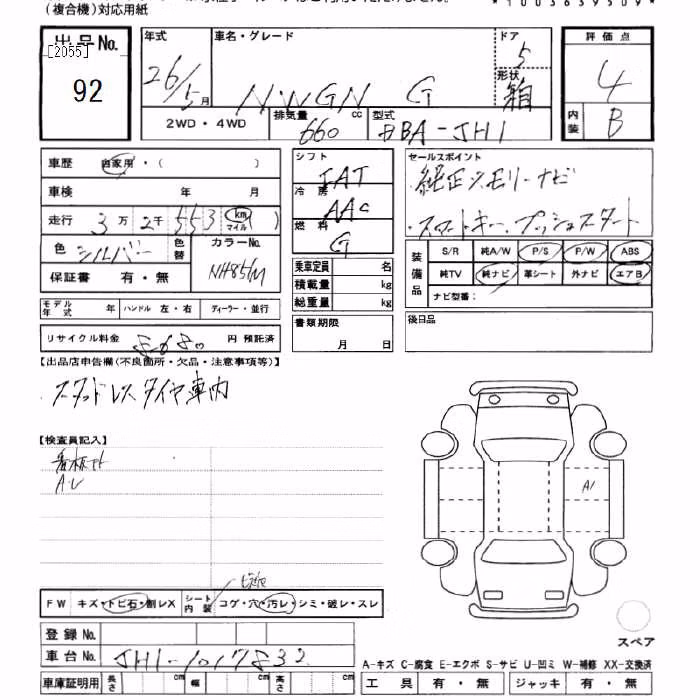 (複合機)対応用紙
*1003639509*
出品No. 年式 車名・グレード ドア 評価点
[2055]
92 26/5月 NWGN G 5 4
形状 箱
2WD・4WD 排気量 660 cc 型式 DBA-JH1 内装 B
車歴 自家用・( ) シフト IAT セールスポイント
車検 年 月 冷房 AAC 純正メモリーナビ
走行 3万2千553 km マイル( ) 燃料 G スマートキー、プッシュスタート
色 シルバー 色替 カラーNo. NH851M
保証書 有・無
乗車定員 名
積載量 kg
総重量 kg
装備品 S/R 純A/W P/S P/W ABS
純TV 純ナビ 革シート 外ナビ エアB
ナビ型番:
モデル年式 年 ハンドル 左・右 ディーラー・並行
書類期限 月 日
後日品
リサイクル料金 円 預託済
【出品店申告欄(不良箇所・欠品・注意事項等)】
スタッドレスタイヤ車内
【検査員記入】
A・U
A1
FW キズ・トビ石・割レX シート内装 コゲ・穴・汚レ・シミ・破レ・スレ
スペア
登録No.
車台No. JH1-1017832
A-キズ C-腐食 E-エクボ S-サビ U-凹ミ W-補修 XX-交換済
車庫証明用 長さ cm 幅 cm 高さ cm 工具 有・無 ジャッキ 有・無